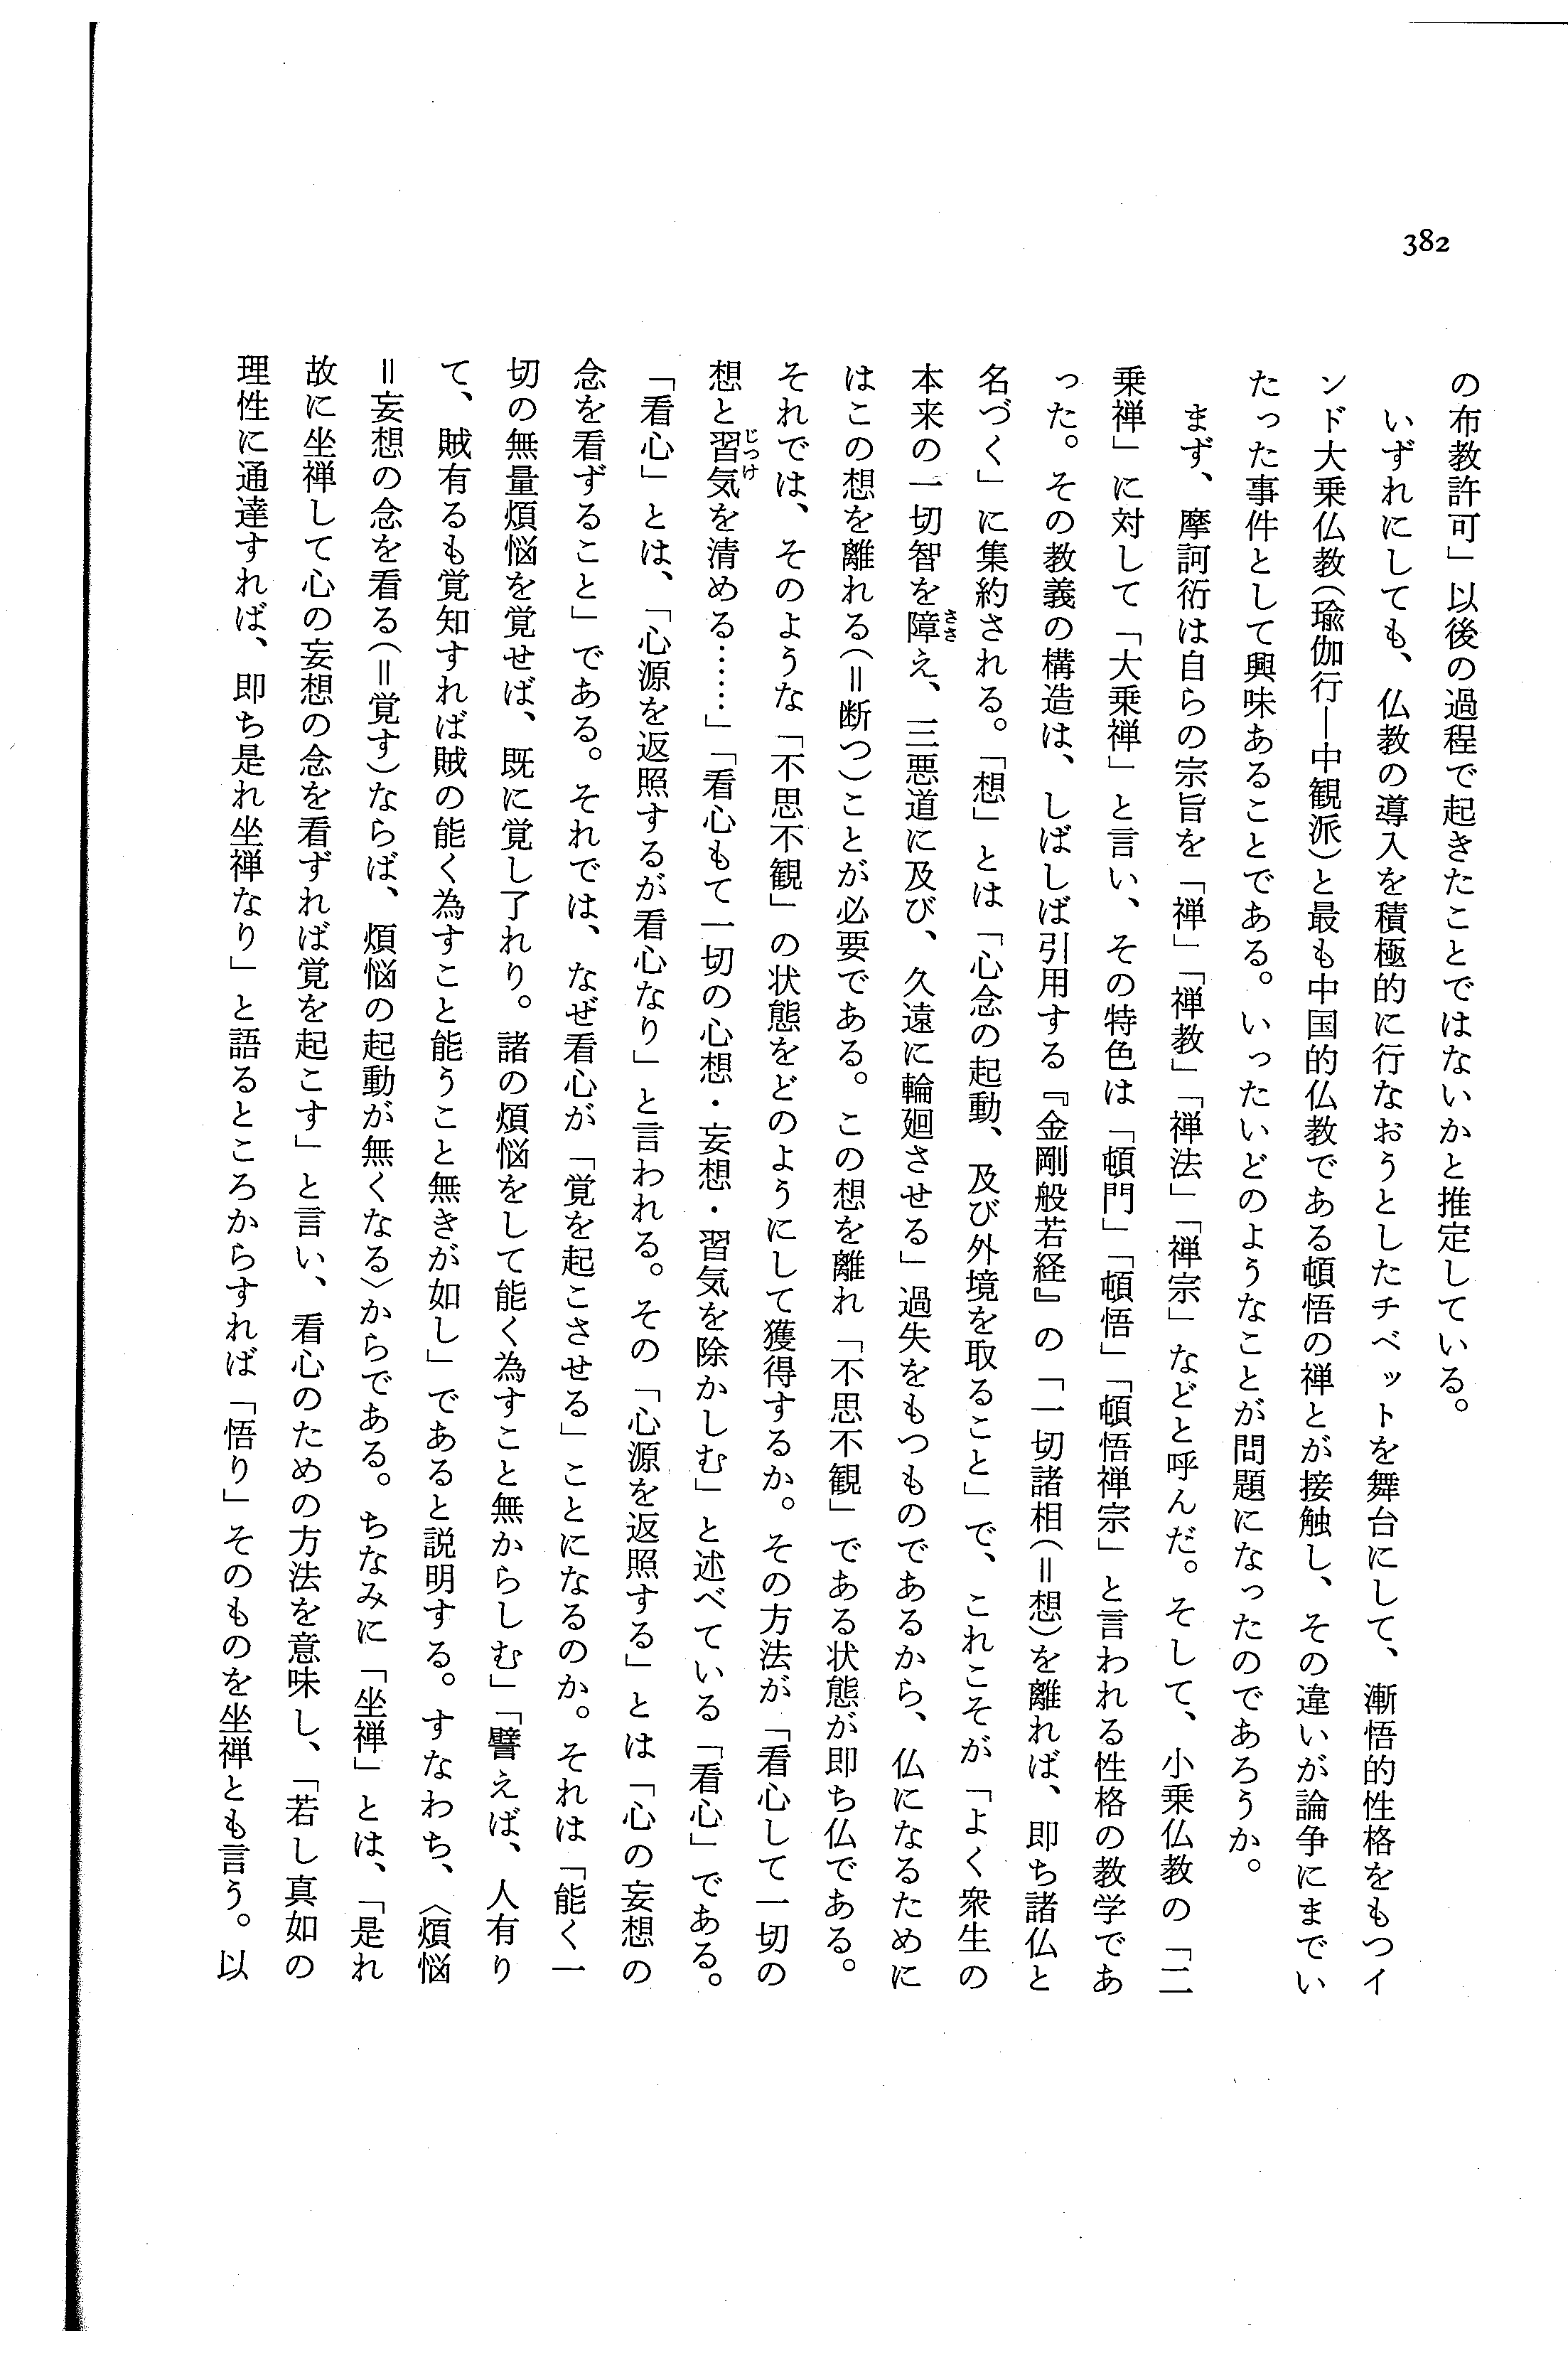 382
の布教許可」以後の過程で起きたことではないかと推定している。
いずれにしても、仏教の導入を積極的に行なおうとしたチベットを舞台にして、漸悟的性格をもつイ
ンド大乗仏教(瑜伽行―中観派)と最も中国的仏教である頓悟の禅とが接触し、その違いが論争にまでい
たった事件として興味あることである。いったいどのようなことが問題になったのであろうか。
まず、摩訶衍は自らの宗旨を「禅」「禅教」「禅法」「禅宗」などと呼んだ。そして、小乗仏教の「二
乗禅」に対して「大乗禅」と言い、その特色は「頓門」「頓悟」「頓悟禅宗」と言われる性格の教学であ
った。その教義の構造は、しばしば引用する『金剛般若経』の「一切諸相(=想)を離れば、即ち諸仏と
名づく」に集約される。「想」とは「心念の起動、及び外境を取ること」で、これこそが「よく衆生の
本来の一切智を障え、三悪道に及び、久遠に輪廻させる」過失をもつものであるから、仏になるために
はこの想を離れる(=断つ)ことが必要である。この想を離れ「不思不観」である状態が即ち仏である。
それでは、そのような「不思不観」の状態をどのようにして獲得するか。その方法が「看心して一切の
想と習気を清める……」「看心もて一切の心想・妄想・習気を除かしむ」と述べている「看心」である。
「看心」とは、「心源を返照するが看心なり」と言われる。その「心源を返照する」とは「心の妄想の
念を看ずること」である。それでは、なぜ看心が「覚を起こさせる」ことになるのか。それは「能く一
切の無量煩悩を覚せば、既に覚し了れり。諸の煩悩をして能く為すこと無からしむ」「譬えば、人有り
て、賊有るも覚知すれば賊の能く為すこと能うこと無きが如し」であると説明する。すなわち、〈煩悩
=妄想の念を看る(=覚す)ならば、煩悩の起動が無くなる〉からである。ちなみに「坐禅」とは、「是れ
故に坐禅して心の妄想の念を看ずれば覚を起こす」と言い、看心のための方法を意味し、「若し真如の
理性に通達すれば、即ち是れ坐禅なり」と語るところからすれば「悟り」そのものを坐禅とも言う。以
じっけ
ささ